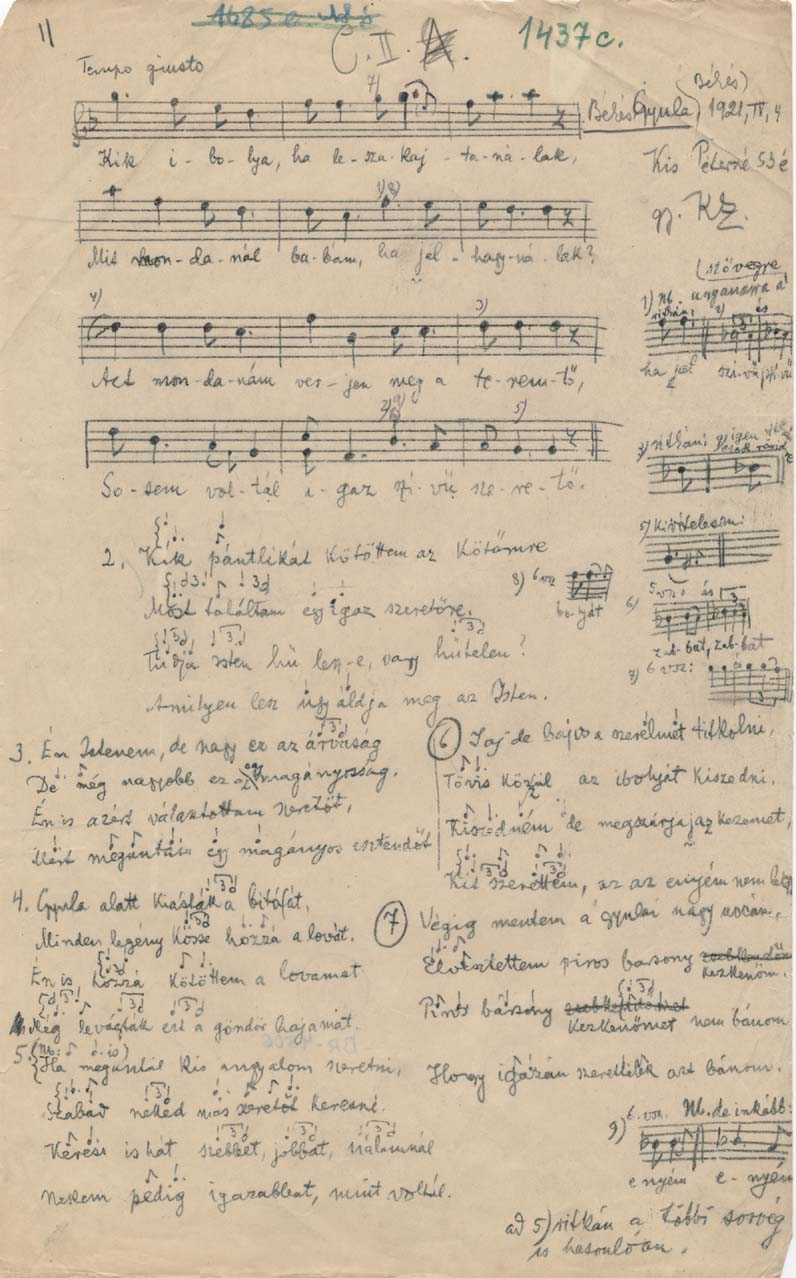 11
1685 e
C. II.
1437 c.
Tempo giusto
7)
Békés Gyula (Békés) 1921, IV, 4
Kis Péterné 53 é
gy. KZ.
Kik i-bo-lya, ha le-sza-kaj-ta-ná-lak,
1) 8)
Mit mon-da-nál ba-bám, ha jel-hagy-ná-lak?
4) 3)
Azt mon-da-nám ver-jen meg a te-rem-tő,
2) 9) 5)
So-sem vol-tál i-gaz szí-vű sze-re-tő.
(szövegre
1) Nb. ugyanarra a
ritkán: 2) és
ha jel szí-vű, szí-vű
3) ritkán: 4) igen
csak rövid
5) Kivételesen:
6) 5 vsz: és
zab-bat, zab-bat
7) 6 vsz:
8) 6 vsz
bo-lyát
2. Kék pántlikát kötöttem az kötőmre
Most találtam egy igaz szeretőre.
Tudja Isten hű lesz-e, vagy hűtelen?
Amilyen lesz úgy áldja meg az Isten.
3. Én Istenem, de nagy ez az árvaság
De még nagyobb ez az egy magányosság.
Én is azért választottam szeretőt,
Mert meguntam egy magányos esztendőt
4. Gyula alatt kiásták a bitófát,
Minden legény kösse hozzá a lovát.
Én is hozzá kötöttem a lovamat
Még levágták ért a göndör hajamat.
5. (Nb: is)
Ha meguntál kis angyalom szeretni,
Szabad neked más szeretőt keresni.
Keress is hát szebbet, jobbat, nálamnál
Nekem pedig igazabbat, mint voltál.
6 Jaj de bajos a szerelmet titkolni,
Tövis közül az ibolyát kiszedni.
Kiszedném de megszúrja az kezemet,
Kit szerettem, az az enyém nem
7 Végig mentem a gyulai nagy uccán,
Elvesztettem piros barsony zsebkendőm
kezkenőm.
Piros bársony
kezkenőmet nem bánom
Hogy igazán szerettelek azt bánom.
9) 6. vsz. Nb. de inkább:
enyém e-nyém
ad 5) ritkán a többi sorvég
is hasonlóan.